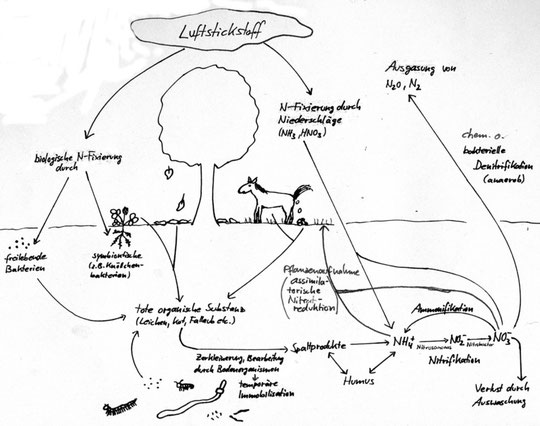 Luftstickstoff
Ausgasung von
N₂O, N₂
N-Fixierung durch
Niederschläge
(NH₃, HNO₃)
chem. o.
bakterielle
Denitrifikation
(anaerob)
biologische N-Fixierung
durch
freilebende
Bakterien
symbiontische
(z.B. Knöllchen-
bakterien)
Pflanzenaufnahme
assimila-
torische
Nitrat-
reduktion
tote organische Substanz
(Leichen, Kot, Fallaub etc.)
Ammonifikation
Spaltprodukte
NH₄⁺
Nitrosomonas
NO₂⁻
Nitrobacter
NO₃⁻
Nitrifikation
Zerkleinerung, Bearbeitung
durch Bodenorganismen
temporäre
Immobilisation
Humus
Verlust durch
Auswaschung